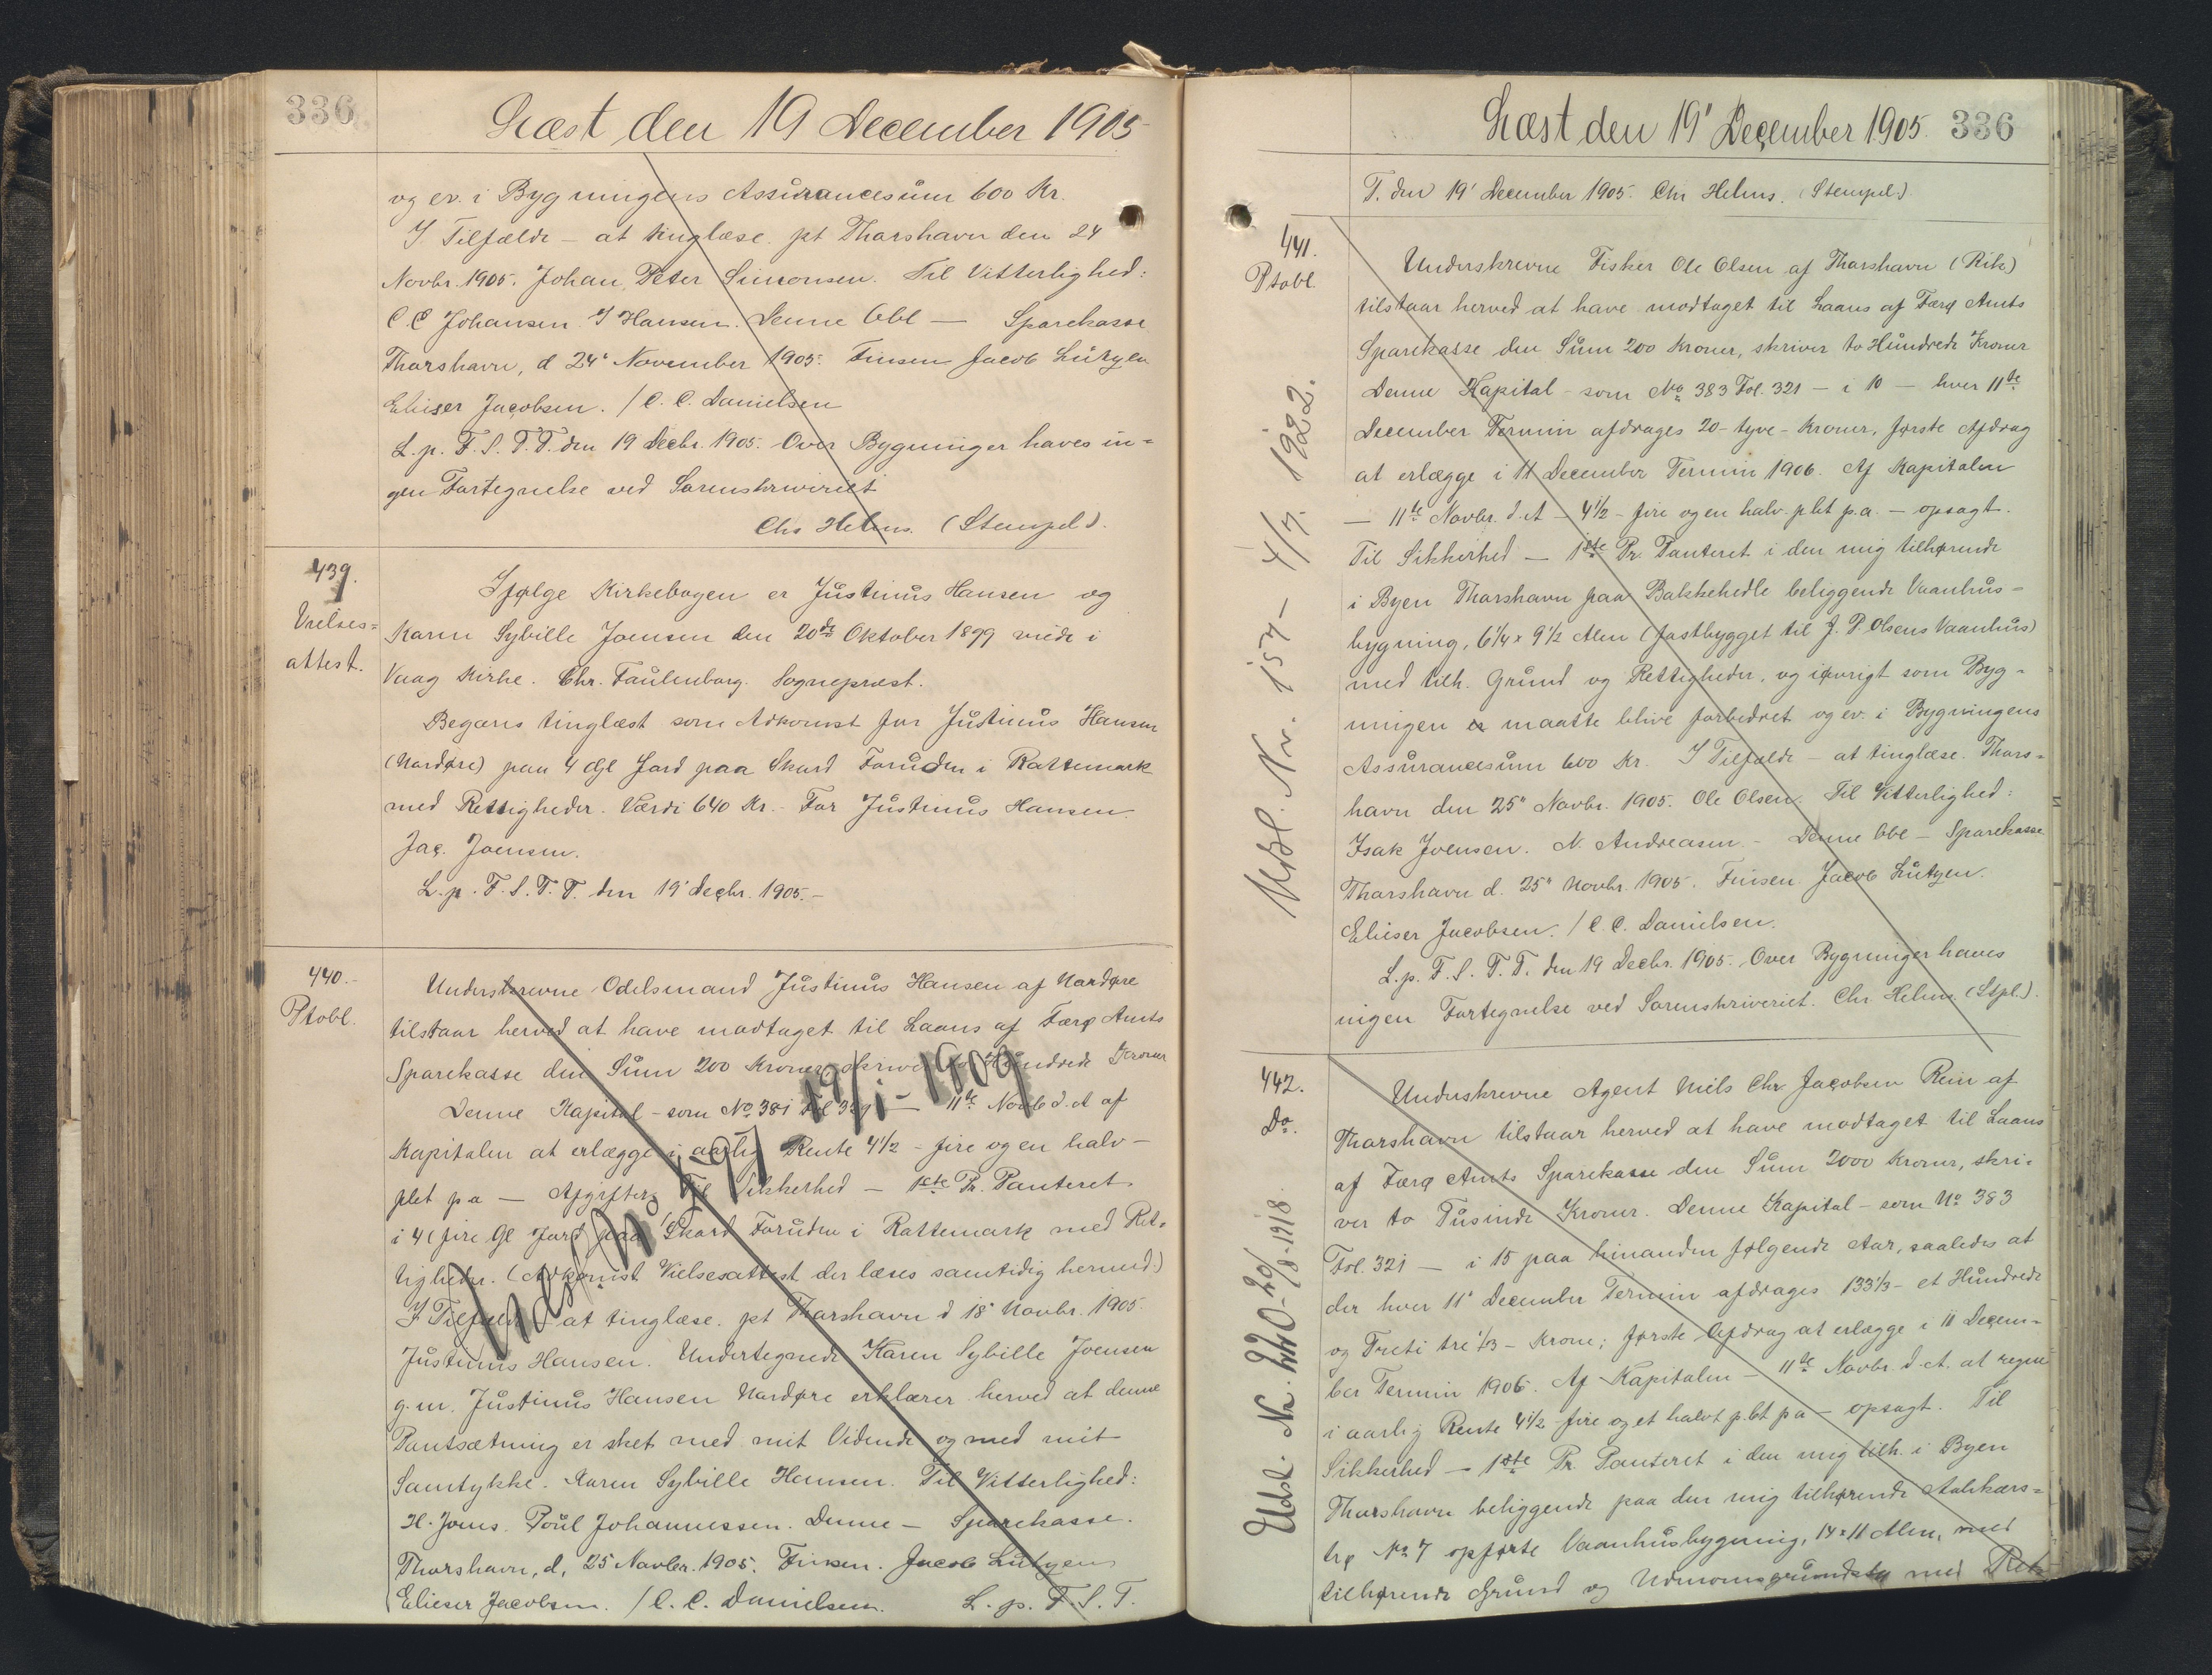 336
Læst den 19 December 1905
og ev. i Bygningens Assurancesum 600 Kr.
I Tilfælde – at tinglæse. pt Thorshavn den 24
Novbr. 1905. Johan Peter Simonsen. Til Vitterlighed:
C. C Johansen. I Hansen. Denne Obl — Sparekasse
Thorshavn, d 24' November 1905. Finsen Jacob Lützen
Elieser Jacobsen. / C. C. Danielsen
L. p. F. S. T. T. den 19 Decbr. 1905. Over Bygninger haves in=
gen Fortegnelse ved Sorenskriveriet
Chr Helms. (Stempel).
439.
Vielses=
attest.
Ifølge Kirkebogen er Justinus Hansen og
Karen Sybille Joensen den 20de Oktober 1899 viede i
Vaag Kirke. Chr. Faulenborg. Sognepræst.
Begæres tinglæst som Adkomst for Justinus Hansen
(Nordøre) paa 4 Gl Jord paa Skard Foruden i Rattemark
med Rettigheder. Værdi 640 Kr. For Justinus Hansen.
Jac. Joensen.
L. p. F. S. T. T. den 19' Decbr. 1905.–
440.–
Ptobl.
Underskrevne Odelsmand Justinus Hansen af Nordøre
tilstaar herved at have modtaget til Laans af Færø Amts
Sparekasse den Sum 200 Kroner, skriver to Hundrede Kroner
Denne Kapital – som No 381 Fol 319 — 11te Novb d. A af
Kapitalen at erlægge i aarlig Rente 4½ – fire og en halv –
pCt p a — Afgifter. Til Sikkerhed — 1ste Pr. Panteret
i 4 (fire Gl Jord paa Skard Foruden i Rattemark med Ret=
tigheder. (Adkomst Vielsesattest der læses samtidig hermed.)
I Tilfælde – at tinglæse. pt Thorshavn d 18' Novbr. 1905.
Justinus Hansen. Undertegnede Karen Sybille Joensen
g. m. Justinus Hansen Nordøre erklærer herved at denne
Pantsætning er sket med mit Vidende og med mit
Samtykke. Karen Sybille Hansen. Til Vitterlighed:
H. Joens. Poul Johannessen. Denne — Sparekasse.
Thorshavn, d, 25 Novbr. 1905. Finsen. Jacob Lützen
Elieser Jacobsen. / C. C. Danielsen. L. p. F. S. T.
Udsl. No 19/1 - 1909
Læst den 19' December 1905. 336
T. den 19' December 1905. Chr Helms. (Stempel).
441.
Ptobl.
Underskrevne Fisker Ole Olsen af Thorshavn (Rik)
tilstaar herved at have modtaget til Laans af Færø Amts
Sparekasse den Sum 200 Kroner, skriver to Hundrede Kroner
Denne Kapital – som No 383 Fol. 321 — i 10 — hver 11te
December Termin afdrages 20 – tyve – Kroner, første Afdrag
at erlægge i 11 December Termin 1906. Af Kapitalen
— 11te Novbr. d. A – 4½ – fire og en halv pCt p. a. – opsagt.
Til Sikkerhed — 1ste Pr. Panteret i den mig tilhørende
i Byen Thorshavn paa Bakkehedle beliggende Vaanhus=
bygning, 6¼ x 9½ Alen (fastbygget til J. P. Olsens Vaanhus)
med tilh. Grund og Rettigheder, og iøvrigt som Byg=
ningen er maatte blive forbedret og ev. i Bygningens
Assurancesum 600 Kr. I Tilfælde – at tinglæse. Thors=
havn den 25' Novbr. 1905. Ole Olsen. Til Vitterlighed:
Isak Joensen. N. Andreasen. – Denne Obl – Sparekasse
Thorshavn d. 25' Novbr. 1905. Finsen. Jacob Lützen.
Elieser Jacobsen. / C. C. Danielsen.
L. p. F. S. T. T. den 19 Decbr. 1905. Over Bygninger haves
ingen Fortegnelse ved Sorenskriveriet. Chr Helms. (Stpl.).
Udsl. Nr. 157 – 4/7. 1922.
442.
Do.
Underskrevne Agent Niels Chr. Jacobsen Rein af
Thorshavn tilstaar herved at have modtaget til Laans
af Færø Amts Sparekasse den Sum 2000 Kroner, skri=
ver to Tusinde Kroner. Denne Kapital – som No 383
Fol. 321 — i 15 paa hinanden følgende Aar, saaledes at
der hver 11' December Termin afdrages 133⅓ – et Hundrede
og Treti tre ⅓ – Krone; første Afdrag at erlægge i 11 Decem=
ber Termin 1906. Af Kapitalen – 11te Novbr. d. A. at regne
i aarlig Rente 4½ fire og et halvt pCt p a – opsagt. Til
Sikkerhed — 1ste Pr. Panteret i den mig tilh. i Byen
Thorshavn beliggende paa den mig tilhørende Aahkærs=
trø No 7 opførte Vaanhusbygning, 14 x 11 Alen, med
tilhørende Grund og med Ret
Udsl. Nr. 220 - 20/8 - 1918.